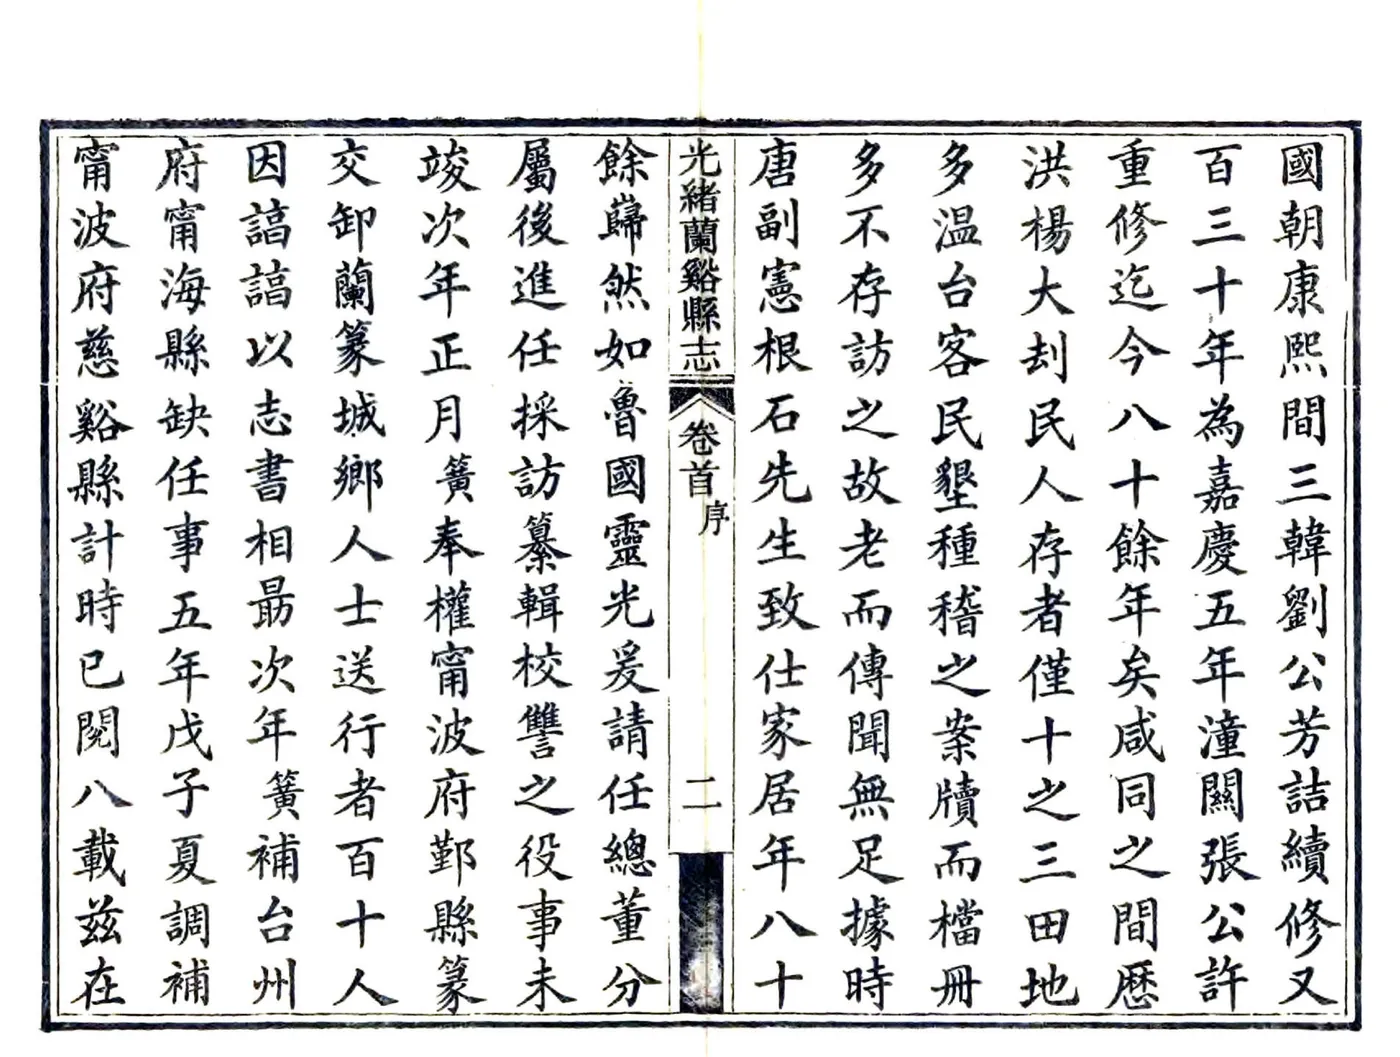 國朝康熙間三韓劉公芳詰續修又
百三十年為嘉慶五年潼關張公許
重修迄今八十餘年矣咸同之間歷
洪楊大刦民人存者僅十之三田地
多温台客民墾種稽之案牘而檔冊
多不存訪之故老而傳聞無足據時
唐副憲根石先生致仕家居年八十
光緒蘭谿縣志 卷首 序 二
餘巋然如魯國靈光爰請任總董分
屬後進任採訪纂輯校讐之役事未
竣次年正月簧奉權甯波府鄞縣篆
交卸蘭篆城鄉人士送行者百十人
因諄諄以志書相勗次年簧補台州
府甯海縣缺任事五年戊子夏調補
甯波府慈谿縣計時已閱八載茲在